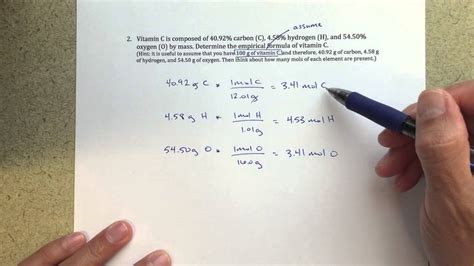 assume
2. Vitamin C is composed of 40.92% carbon (C), 4.58% hydrogen (H), and 54.50%
oxygen (O) by mass. Determine the empirical formula of vitamin C.
(Hint: it is useful to assume that you have 100 g of vitamin C, and therefore, 40.92 g of carbon, 4.58 g
of hydrogen, and 54.50 g of oxygen. Then think about how many mols of each element are present.)
40.92 g C * 1 mol C / 12.01 g = 3.41 mol C
4.58 g H * 1 mol H / 1.01 g = 4.53 mol H
54.50 g O * 1 mol O / 16.0 g = 3.41 mol O